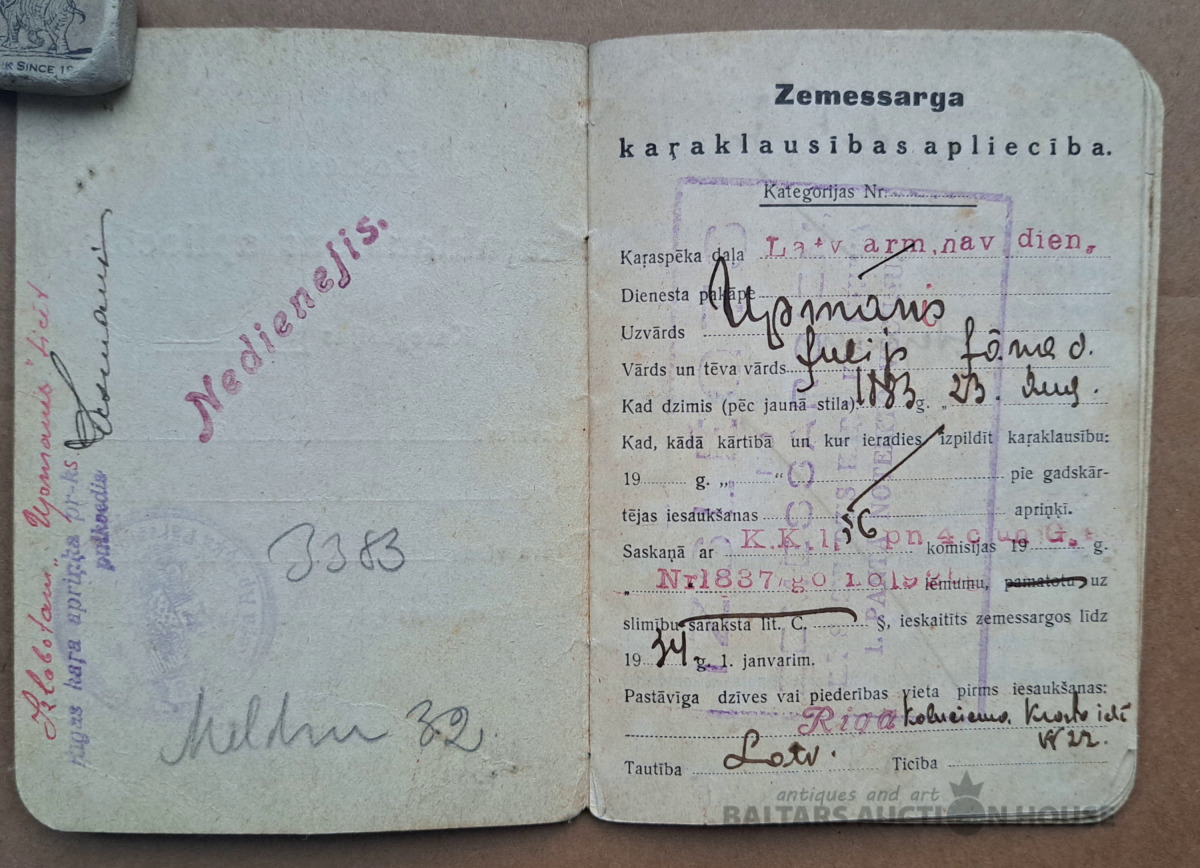 K SINCE 19
Nedienejis.
3383
Meldru 32.
Rīgas kara apriņķa pr-ks.
pulkvedis
Zemessarga
kaŗaklausības apliecība.
Kategorijas Nr.
Kaŗaspēka daļa Latv. arm. nav dien.
Dienesta pakāpe
Uzvārds Upmanis
Vārds un tēva vārds Jūlijs
Kad dzimis (pēc jaunā stila) 1883 g. „23. Aug.
Kad, kādā kārtībā un kur ieradies izpildīt kaŗaklausību:
19 g. „ “ pie gadskār-
tējas iesaukšanas apriņķī.
Saskaņā ar K.K.l. pn 4 c un G. komisijas 19 g.
„ Nr1837/go lēmumu, pamatotu uz
slimību saraksta lit. C. §, ieskaitīts zemessargos līdz
1934 g. 1. janvarim.
Pastāvīga dzīves vai piederības vieta pirms iesaukšanas:
Rīga
Tautība Latv. Ticība
antiques and art
BALTARS AUCTION HOUSE